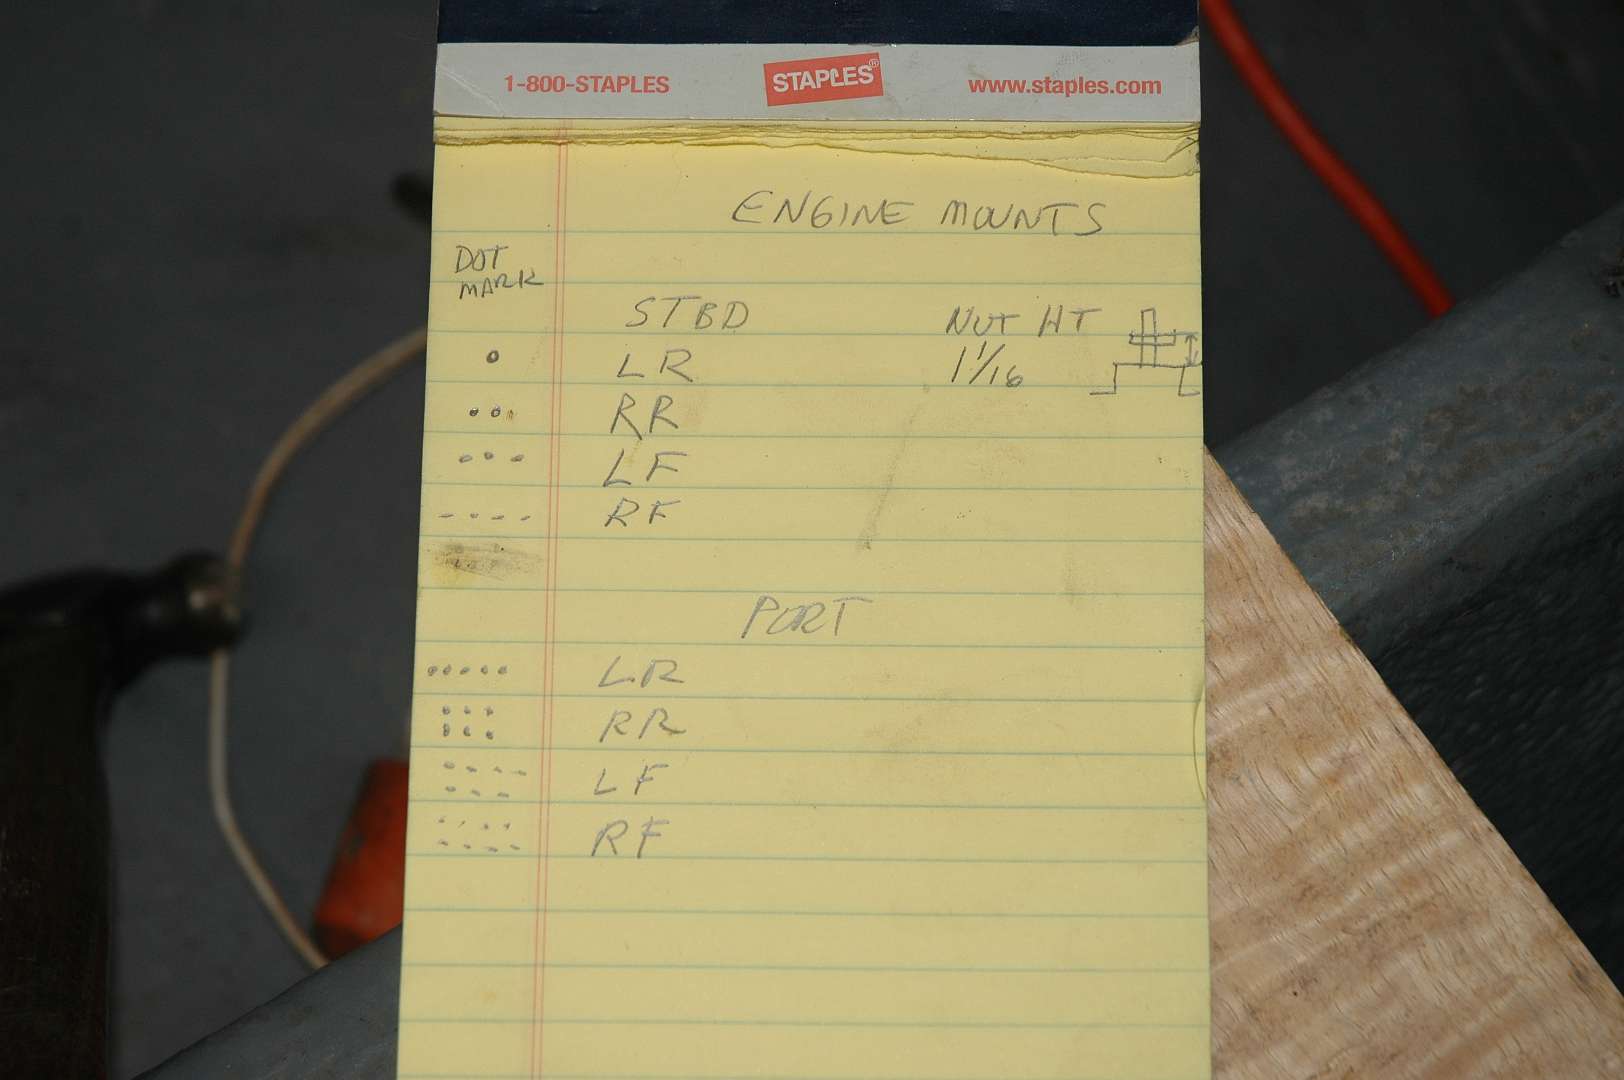 1-800-STAPLES STAPLES® www.staples.com
ENGINE MOUNTS
DOT
MARK
STBD NUT HT
LR 1 1/16
RR
LF
RF
PORT
LR
RR
LF
RF